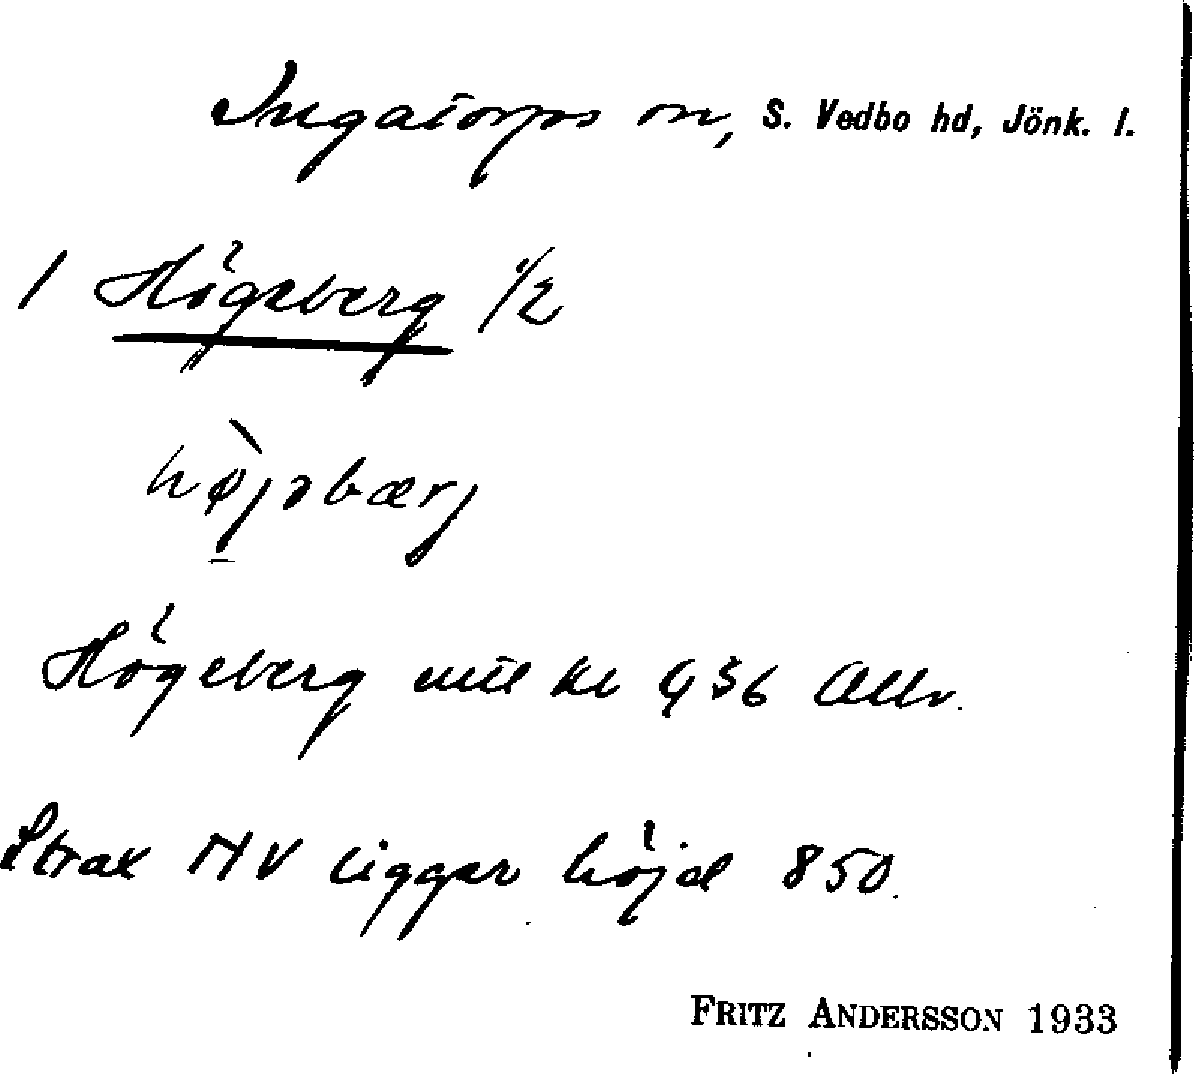 Ingatorps sn, S. Vedbo hd, Jönk. l.
1 Högeberg 1/2
højəbærj
Högeberg mil kl 9 36 Allv.
Strax NV ligger höjd 850.
FRITZ ANDERSSON 1933